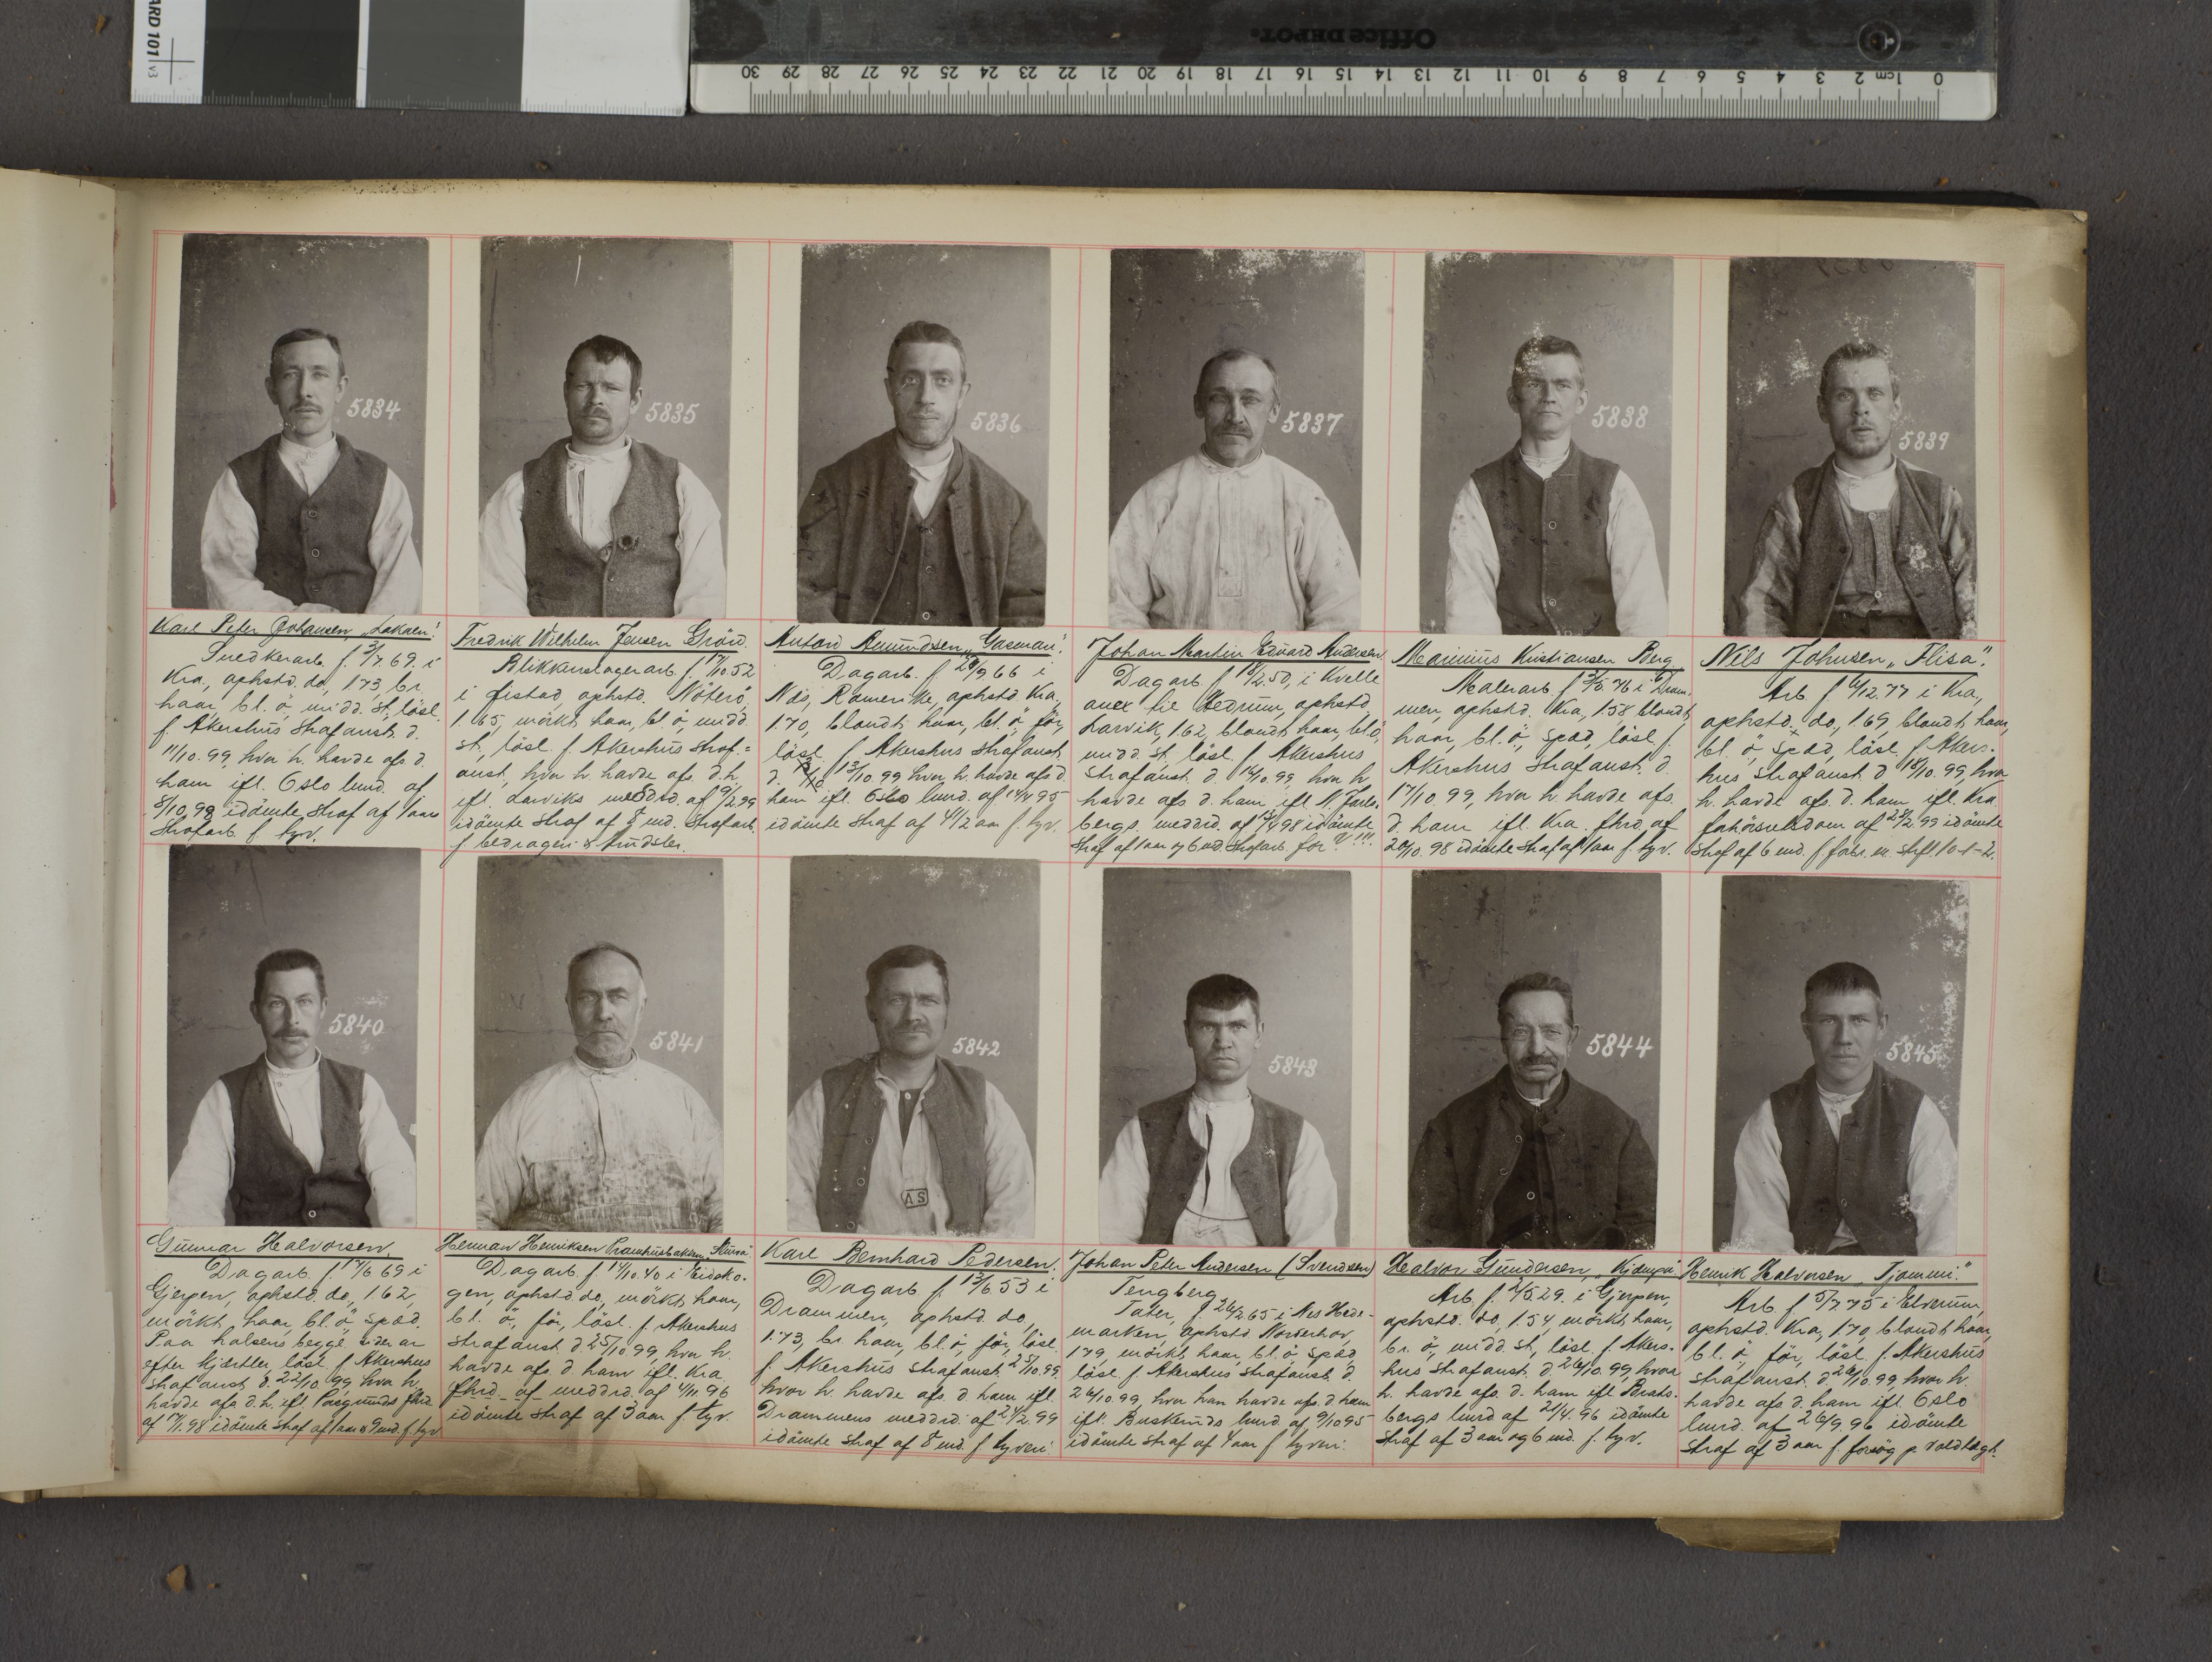 ARD 101 v3
Office DEPOT
0 1cm 2 3 4 5 6 7 8 9 10 11 12 13 14 15 16 17 18 19 20 21 22 23 24 25 26 27 28 29 30
5834
5835
5836
5837
5838
5839
Karl Peter Johansen, "Lakaen".
Snedkerarb. f. 3/7.69. i
Kra., ophstd. do, 1.73, br.
haar, bl. ö, midd. st, lösl.
f. Akershus Strafanst. d.
11/10.99, hvor h. havde afs. d.
ham ifl. Oslo lmrd. af
8/10.98 idömte straf af 1 aar
Strafarb. f. tyv.
Fredrik Wilhelm Jensen Grönd.
Blikkenslagerarb. f. 17/10.52
i fistad, ophstd. Nöterö,
1.65, mörkt haar, bl. ö, midd.
st, lösl. f. Akershus Straf=
anst, hvor h. havde afs. d. h.
ifl. Larviks meddrd. af 9/2.99
idömte straf af 8 md. Strafarb.
f. bedrageri &
Antond Amundsen, "Gasman".
Dagarb. f. 28/9.66 i
Näs, Romerike, ophstd. Kra,
1.70, blondt haar, bl. ö, för,
lösl. f. Akershus Strafanst.
d. 13/10 99 hvor h. havde afs d.
ham ifl. Oslo lmrd. af 14/4 95
idömte straf af 4 1/2 aar f. tyv.
Johan Martin Edvard Andersen
Dagarb f. 18/2.50, i Kvelle
anex til Hedrum, ophstd.
Larvik, 1.62, blondt haar, bl. ö,
midd. st, lösl. f. Akershus
Strafanst. d. 14/10.99, hvor h
havde afs d. ham, ifl. N. Jarls-
bergs. meddrd. af 13/4 98 idömte
Straf af 1 aar og 6 md. Strafarb. for ? !!!
Marinius Kristiansen Berg
Malerarb. f. 3/5.76 i Dram-
men, ophstd. Kra, 1.58, blondt
haar, bl. ö, späd, lösl. f.
Akershus Strafanst. d.
17/10.99, hvor h. havde afs.
d. ham ifl. Kra. fhrd. af
20/10.98 idömte straf af 1 aar f. tyv.
Nils Johnsen, "Flisa".
Arb. f. 6/12.77 i Kra,
ophstd. do, 1.69, blondt haar,
bl. ö, späd, lösl. f. Akers-
hus Strafanst. d 18/10.99, hvor
h. havde afs. d. ham, ifl. Kra.
forhörsretsdom af 23/2.99 idömte
Straf af 6 md. f. forbr. m. Strfl. 10-1-2.
5840
5841
5842
A S
5843
5844
5845
Gunnar Halvorsen.
Dagarb. f. 17/6 69 i
Gjerpen, ophstd. do, 1.62,
mörkt haar, bl. ö, späd.
Paa halsens begge sider ar
efter kjertler, lösl. f. Akershus
Strafanst d 22/10.99 hvor h.
havde afs d. h. ifl. Porsgrunds fhrd
af 17/1.98 idömte straf af 1 aar & 9 md. f. tyv
Herman Henriksen
Dagarb. f. 14/10.40 i Eidsko-
gen, ophstd. do, mörkt haar,
bl. ö, för, lösl. f. Akershus
Strafanst. d. 25/10.99, hvor h.
havde afs. d. ham ifl. Kra
fhrd. af meddrd. af 4/11.96
idömte straf af 3 aar f. tyv.
Karl Bernhard Pedersen.
Dagarb f. 13/6.53 i
Drammen, ophstd. do,
1.73, br. haar, bl. ö, för, lösl
f. Akershus Strafanst. 25/10.99
hvor h. havde afs d. ham ifl.
Drammens meddrd. af 24/2.99
idömte straf af 8 md. f. tyveri.
Johan Peter Andersen (Svendsen)
Tengberg
Tater, f. 26/2 65 i Nes Hede-
marken, ophstd. Norderhov,
1.79, mörkt haar, bl. ö, späd,
lösl. f. Akershus Strafanst. d.
26/10.99, hvor han havde afs. d. ham
ifl. Buskeruds lmrd. af 9/10 95
idömte straf af 4 aar f. tyveri.
Halvor Gundersen,
Arb. f. 2/5.29. i Gjerpen,
ophstd. do, 1.54, mörkt haar,
br. ö, midd. st, lösl. f. Akers-
hus Strafanst. d 26/10.99, hvor
h. havde afs. d. ham ifl Brats-
bergs lmrd af 21/4.96 idömte
Straf af 3 aar og 6 md. f. tyv.
Henrik Halvorsen "Tjommi".
Arb. f. 5/7.75 i Elverum,
ophstd. Kra, 1.70, blondt haar,
bl. ö, för, lösl. f. Akershus
Strafanst. d. 26/10.99, hvor h.
havde afs d. ham ifl. Oslo
lmrd. af 26/9.96 idömte
Straf af 3 aar f. forsög p. voldtægt.